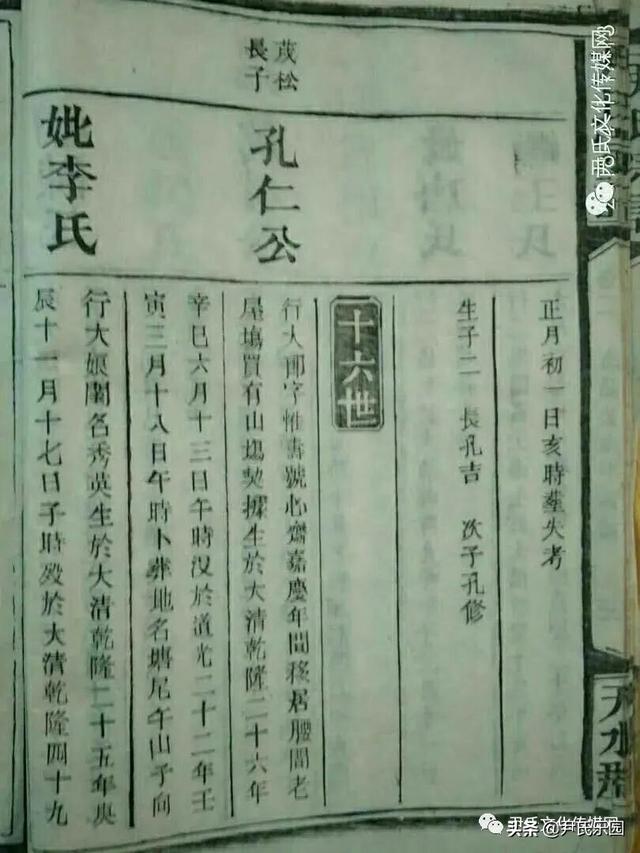 正月初一日亥時塟失考
生子二 長孔吉 次子孔修
十六世
茂松長子
孔仁公
行人郎字惟壽號心齋嘉慶年間移居腰閭老
屋塲買有山塲契據生於大清乾隆二十六年
辛巳六月十三日午時没於道光二十二年壬
寅三月十八日午時卜葬地名塘尾午山子向
妣李氏
行大娘閨名秀英生於大清乾隆二十五年庚
辰十一月十七日子時歿於大清乾隆四十九
天水郡
尹氏文化传媒网
尹氏文化传媒网
头条 @尹氏乐园